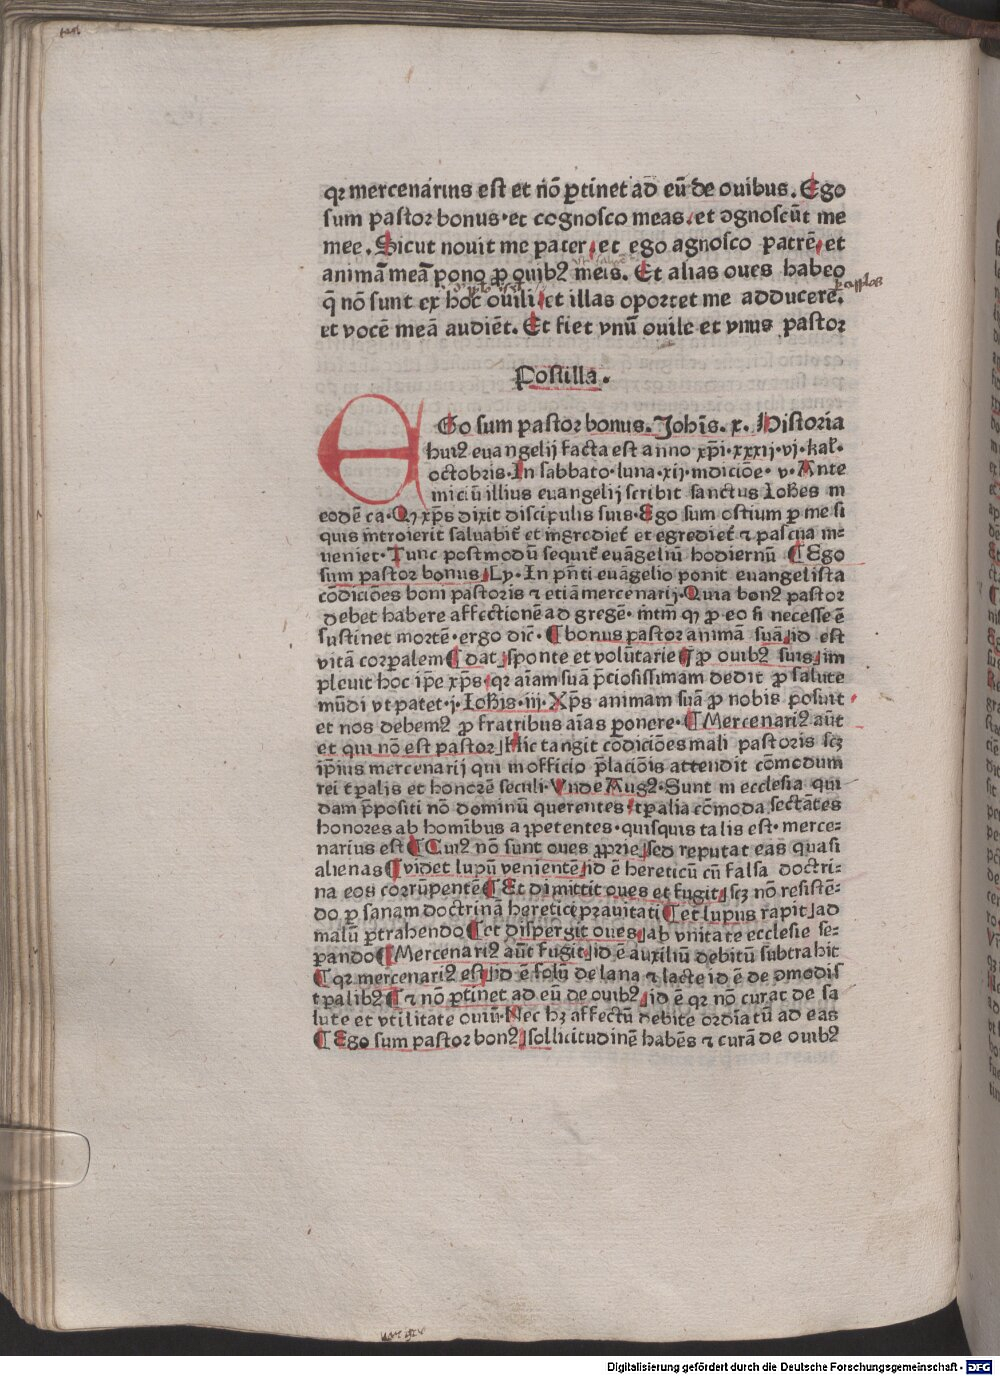 qꝛ mercenarius est et nō ꝑtinet ad eū de ouibus. Ego
sum pastor bonus·et cognosco meas.et ꝯgnoscūt me
mee. Sicut nouit me pater,et ego agnosco patrē,et
animā meā pono ꝓ ouibꝰ meis. Et alias oues habeo
q̄ nō sunt ex hoc ouili,et illas oportet me adducere.
et vocē meā audiēt. Et fiet vnū ouile et vnus pastor
Postilla.
EGo sum pastor bonus. Joh̄is. x. Historia
huiꝰ euangelij facta est anno xp̄i·xxxij·vj·kal̄·
octobris·In sabbato·luna·xij·indiciōe·v·Ante
iniciū illius euangelij scribit sanctus Ioh̄es in
eodē ca·Qꝫ xp̄s dixit discipulis suis·Ego sum ostium ꝑ me si
quis introierit saluabit̄ et ingrediet̄ et egrediet̄ ⁊ pascua in-
ueniet·Tunc postmodū sequit̄ euāgeliū hodiernū ¶ Ego
sum pastor bonus·Ly·In p̄nti euāgelio ponit euangelista
cōdiciōes boni pastoris ⁊ etiā mercenarij·Quia bonꝰ pastor
debet habere affectionē ad gregē·m̄tm̄ qꝫ ꝓ eo si necesse ē
sustinet mortē·ergo dic̄·¶ bonus pastor animā suā,id est
vitā corpalem ¶ dat,sponte et volūtarie ¶ ꝓ ouibꝰ suis,im
pleuit hoc ip̄e xp̄s·qꝛ aīam suā p̄ciosissimam dedit ꝓ salute
mūdi vt patet·j·Ioh̄is·iij·Xp̄s animam suā ꝓ nobis posuit
et nos debemꝰ ꝓ fratribus aīas ponere·¶ Mercenariꝰ aūt
et qui nō est pastor,Hic tangit cōdiciōes mali pastoris scꝫ
ip̄ius mercenarij qui in officio p̄laciōis attendit cōmodum
rei tꝑalis et honorē seculi·Vnde Augꝰ·Sunt in ecclesia qui
dam p̄positi nō dominū querentes,tꝑalia cōmoda sectātes
honores ab homībus appetentes·quisquis talis est·merce-
narius est ¶ Cuiꝰ nō sunt oues ꝓprie,sed reputat eas quasi
alienas ¶ videt lupū venientē,id ē hereticū cū falsa doctri-
na eos corrūpentē ¶ Et dimittit oues et fugit,scꝫ nō resistē-
do ꝑ sanam doctrinā heretice prauitati ¶ et lupus rapit,ad
malū ꝑtrahendo ¶ et dispergit oues,ab vnitate ecclesie se-
ꝑando ¶ Mercenariꝰ aūt fugit,id ē auxiliū debitū subtrahit
¶ qꝛ mercenariꝰ est,id ē solū de lana ⁊ lacte id ē de ꝯmodis
tꝑalibꝰ ¶ ⁊ nō ꝑtinet ad eū de ouibꝰ,id ē qꝛ nō curat de sa
lute et vtilitate ouiū·Nec hꝫ affectū debite ordīatū ad eas
¶ Ego sum pastor bonꝰ,sollicitudinē habēs ⁊ curā de ouibꝰ
Digitalisierung gefördert durch die Deutsche Forschungsgemeinschaft - DFG